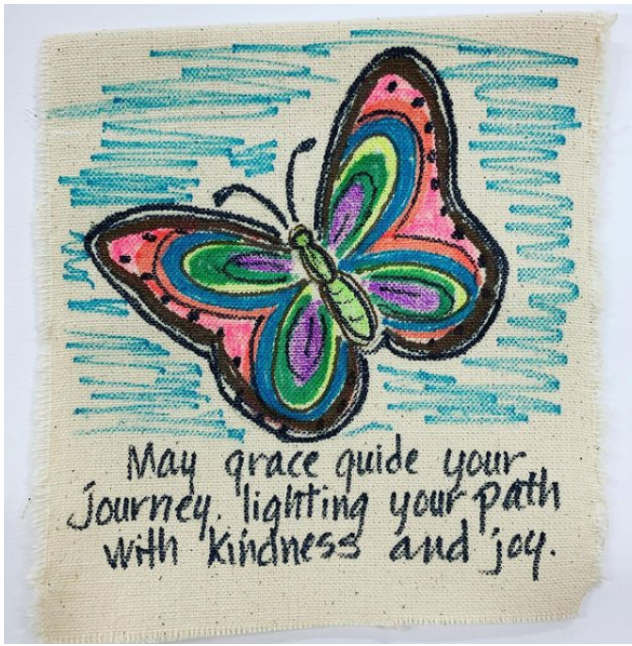 May grace guide your
journey, lighting your path
with kindness and joy.